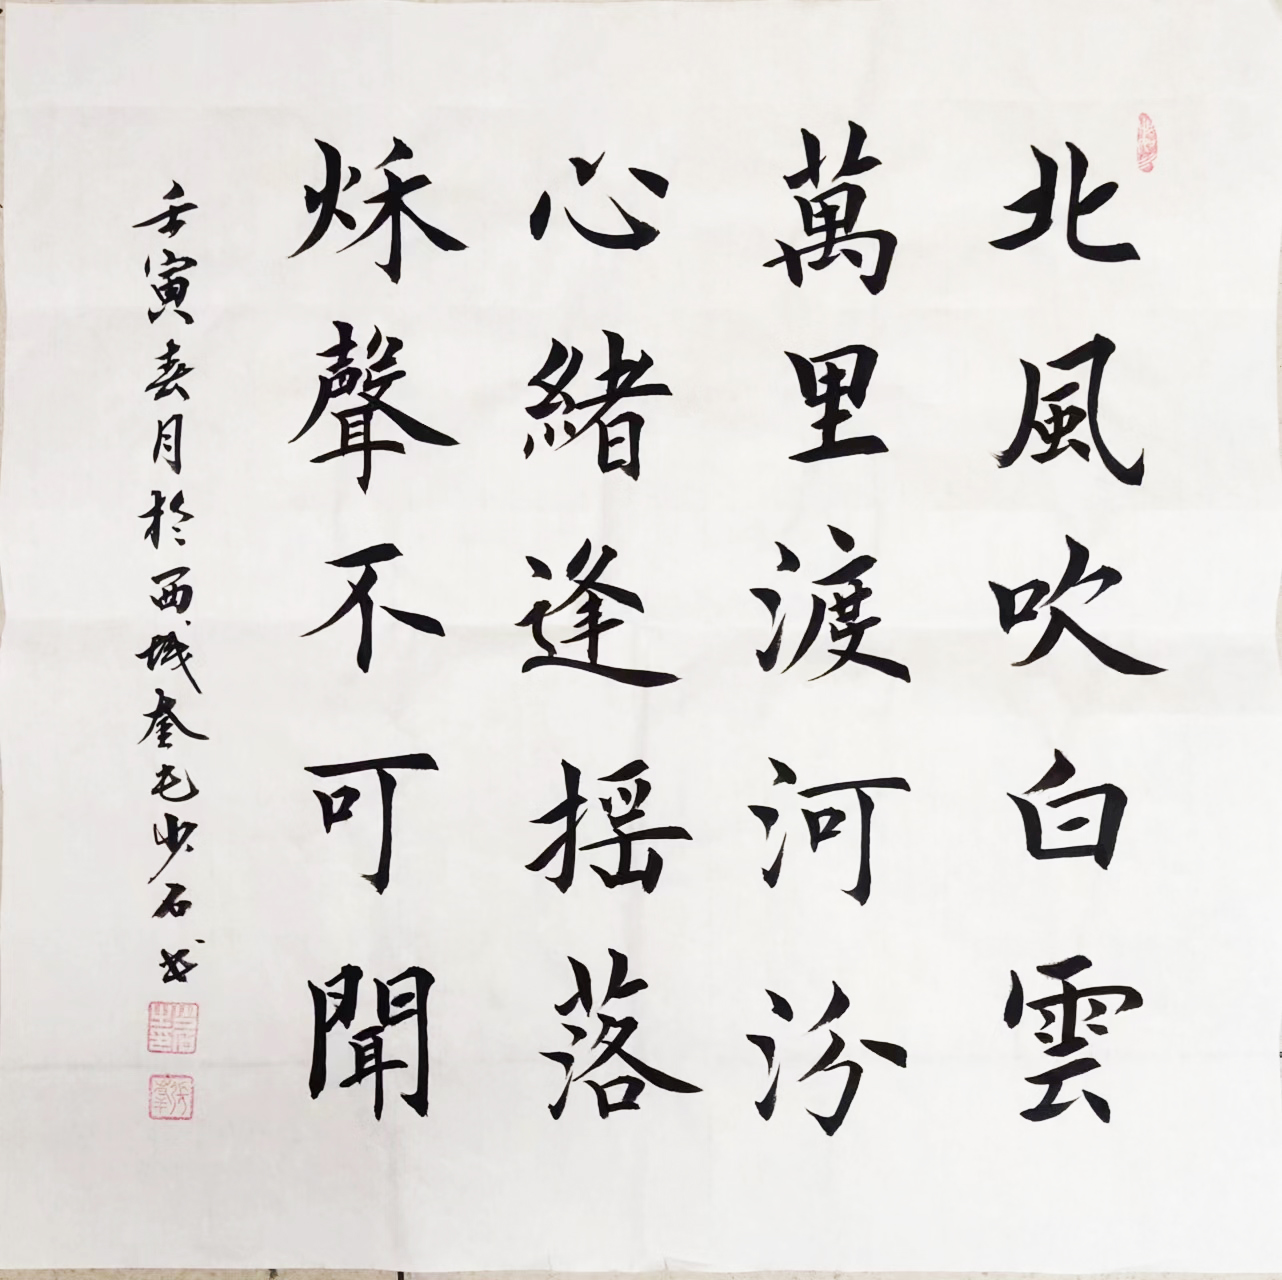 北風吹白雲
萬里渡河汾
心緒逢摇落
秌聲不可聞
壬寅春月於西城奎屯少石书